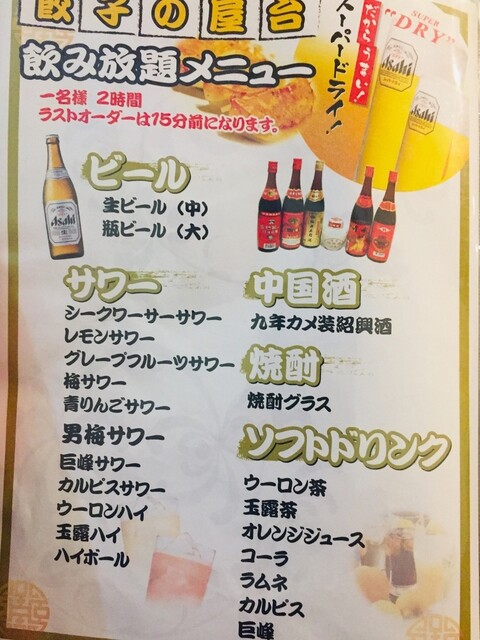 餃子の屋台
飲み放題メニュー
一名様 2時間
ラストオーダーは15分前になります。
だからうまい!
スーパードライ!
SUPER
"DRY"
Asahi
Asahi
Asahi
ビール
生ビール（中）
瓶ビール（大）
サワー
シークワーサーサワー
レモンサワー
グレープフルーツサワー
梅サワー
青りんごサワー
男梅サワー
巨峰サワー
カルピスサワー
ウーロンハイ
玉露ハイ
ハイボール
中国酒
九年カメ装紹興酒
焼酎
焼酎グラス
ソフトドリンク
ウーロン茶
玉露茶
オレンジジュース
コーラ
ラムネ
カルピス
巨峰